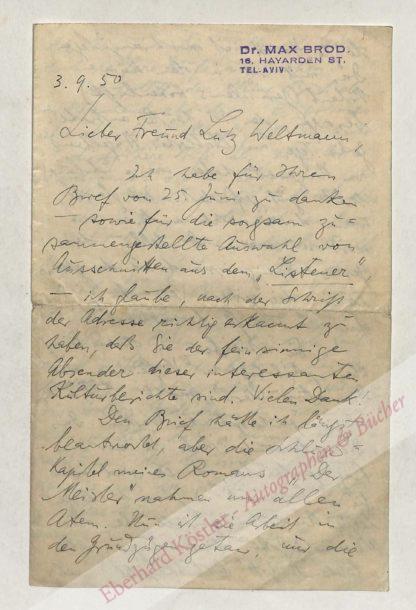 Dr. MAX BROD.
16, HAYARDEN ST.
TEL-AVIV
3. 9. 50
Lieber Freund Lutz Weltmann,
Ich habe für Ihren
Brief vom 25. Juni zu danken
– sowie für die sorgsam zu=
sammengestellte Auswahl von
Ausschnitten aus dem „Listener"
– ich glaube, nach der Schrift
der Adresse richtig erkannt zu
haben, daß Sie der feinsinnige
Absender dieser interessanten
Kulturberichte sind. Vielen Dank!
Den Brief hätte ich längst
beantwortet, aber die Schluß=
kapitel meines Romans „Der
Meister" nahmen mir allen
Atem. Nun ist die Arbeit in
den Grundzügen getan, nur die
Eberhard Köstler Autographen & Bücher